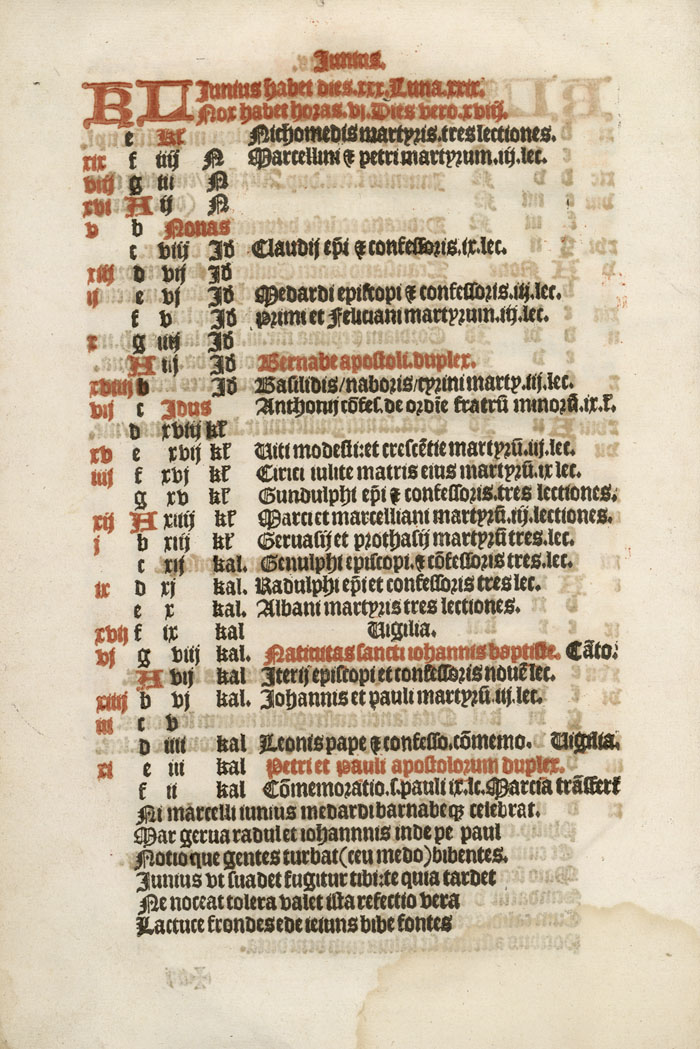 Junius.
KL Junius habet dies.xxx.Luna.xxix.
Nox habet horas.vi.Dies vero.xviij.
e kl Nichomedis martyris.tres lectiones.
xix f iiij N Marcellini & petri martyrum.iij.lec.
viij g iii N
xvi A ij N
v b Nonas
c viij Id Claudij ep̃i & confessoris.ix.lec.
xiij d vij Id
ij e vj Id Medardi episcopi & confessoris.iij.lec.
f v Id Primi et Feliciani martyrum.iij.lec.
x g iiij Id
A iij Id Bernabe apostoli.duplex.
xviij b Id Basilidis/naboris/cyrini marty.iij.lec.
vij c Idus Anthonij cõfes.de ordĩe fratrũ minorũ.ix.ł.
d xviij kł
xv e xvij kł Viti modesti:et crescẽtie martyrũ.iij.lec.
iiij f xvj kł Cirici iulite matris eius martyrũ.ix lec.
g xv kł Gundulphi ep̃i & confessoris.tres lectiones.
xij A xiiij kł Marci et marcelliani martyrũ.iij.lectiones.
j b xiij kł Geruasij et prothasij martyrũ tres.lec.
c xij kal. Genulphi episcopi.& cõfessoris tres.lec.
ix d xj kal. Radulphi ep̃i et confessoris tres lec.
e x kal. Albani martyris tres lectiones.
xvij f ix kal Vigilia.
vj g viij kal. Natiuitas sancti iohannis baptiste. Cãto:
A vij kal. Iterij episcopi et confessoris nouẽ lec.
xiiij b vj kal. Johannis et pauli martyrũ.iij.lec.
iii c v
d iiii kal Leonis pape & confesso.cõmemo. Vigilia.
xi e iii kal Petri et pauli apostolorum duplex.
f ii kal Cõmemoratio.s.pauli ix.le.Marcia trãsfert
Ni marcelli iunius medardi barnabeqꝫ celebrat.
Mar gerua radul et iohannnis inde pe paul
Notio que gentes turbat(ceu medo)bibentes.
Junius vt suadet fugitur tibi:te quia tardet
Ne noceat tolera valet ista refectio vera
Lactuce frondes ede ieiuns bibe fontes